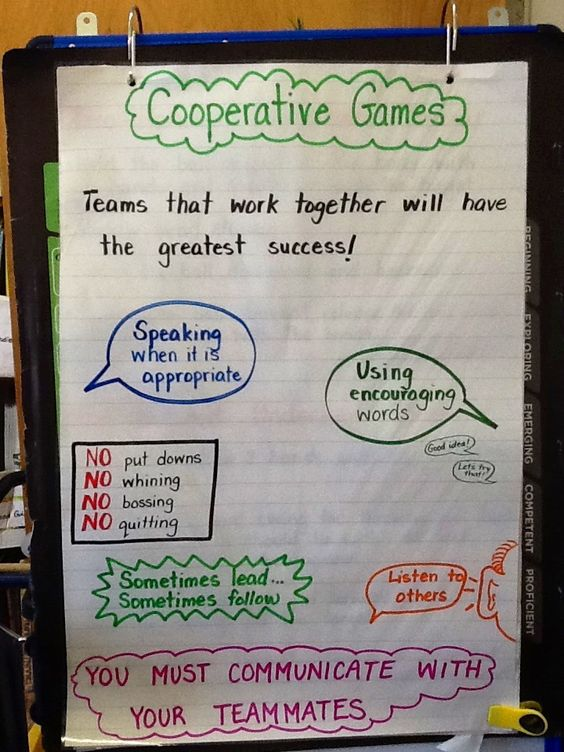 Cooperative Games
Teams that work together will have
the greatest success!
Speaking
when it is
appropriate
Using
encouraging
words
Good idea!
Let's try
that!
NO put downs
NO whining
NO bossing
NO quitting
Sometimes lead...
Sometimes follow
Listen to
others
YOU MUST COMMUNICATE WITH
YOUR TEAMMATES
BEGINNING
EXPLORING
EMERGING
COMPETENT
PROFICIENT